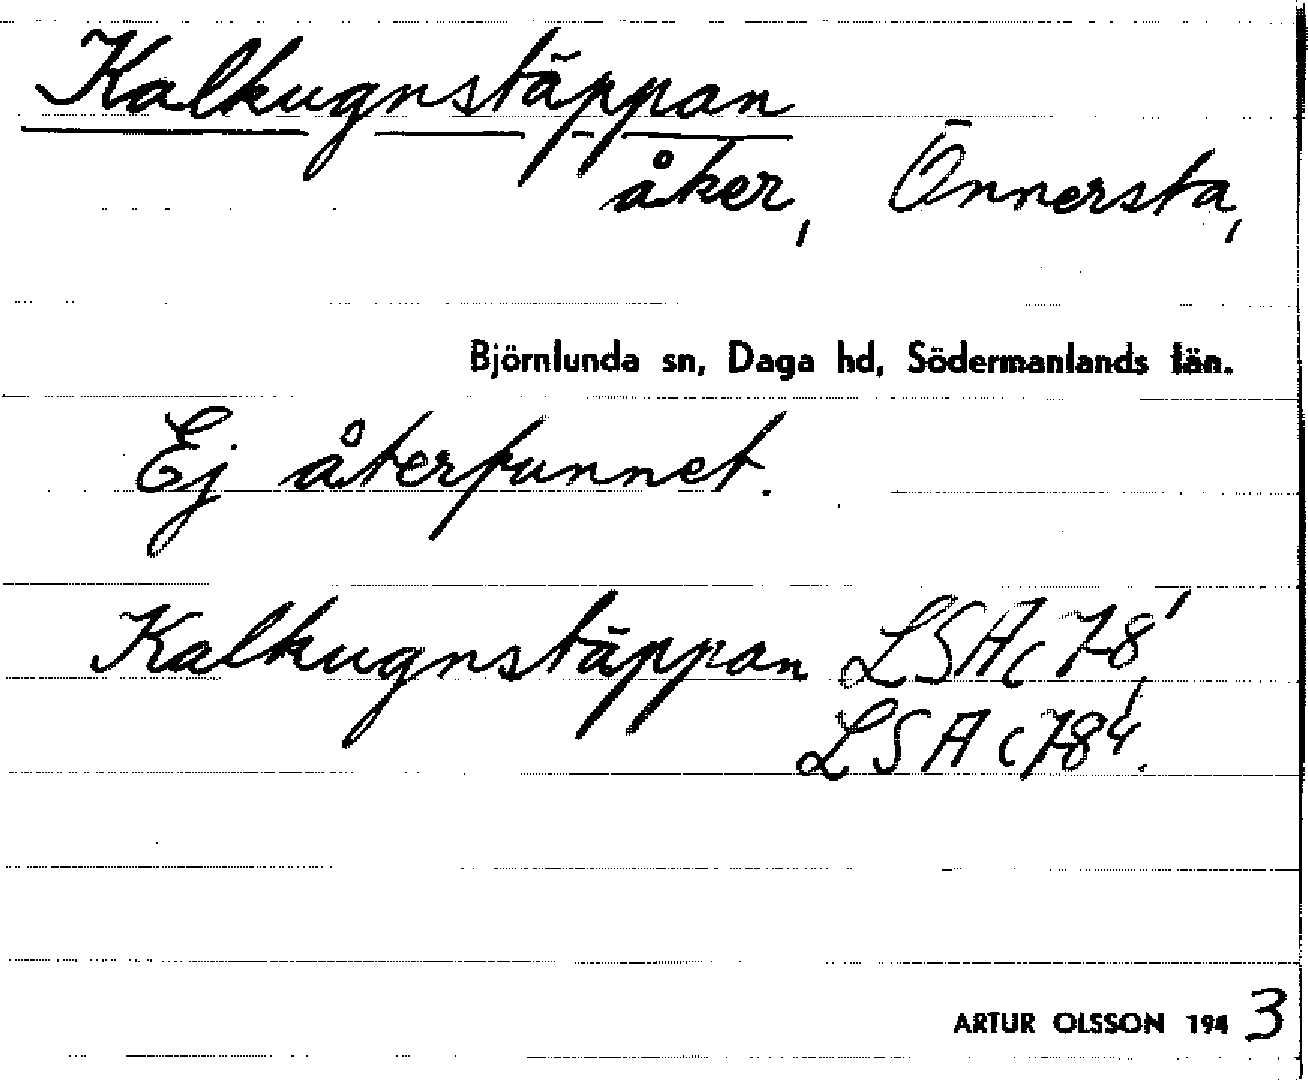 Kalkugnstäppan
åker, Önnersta,
Björnlunda sn, Daga hd, Södermanlands län.
Ej återfunnet.
Kalkugnstäppan LSA C 7-8
LSA C 7-8
ARTUR OLSSON 1943